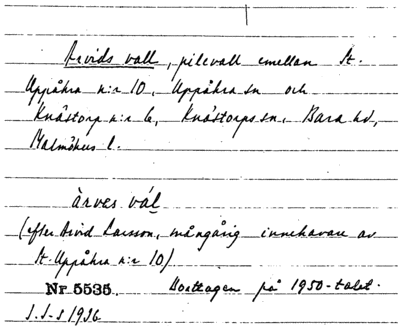 Arvids vall, pilevall emellan St.
Uppåkra n:r 10, Uppåkra sn och
Knästorp n:r 6, Knästorps sn, Bara hd,
Malmöhus l.
ärves vál
(efter Arvid Larsson, mångårig innehavare av
St. Uppåkra n:r 10)
Nr 5535. Borttagen på 1950-talet.
I.I-s 1936